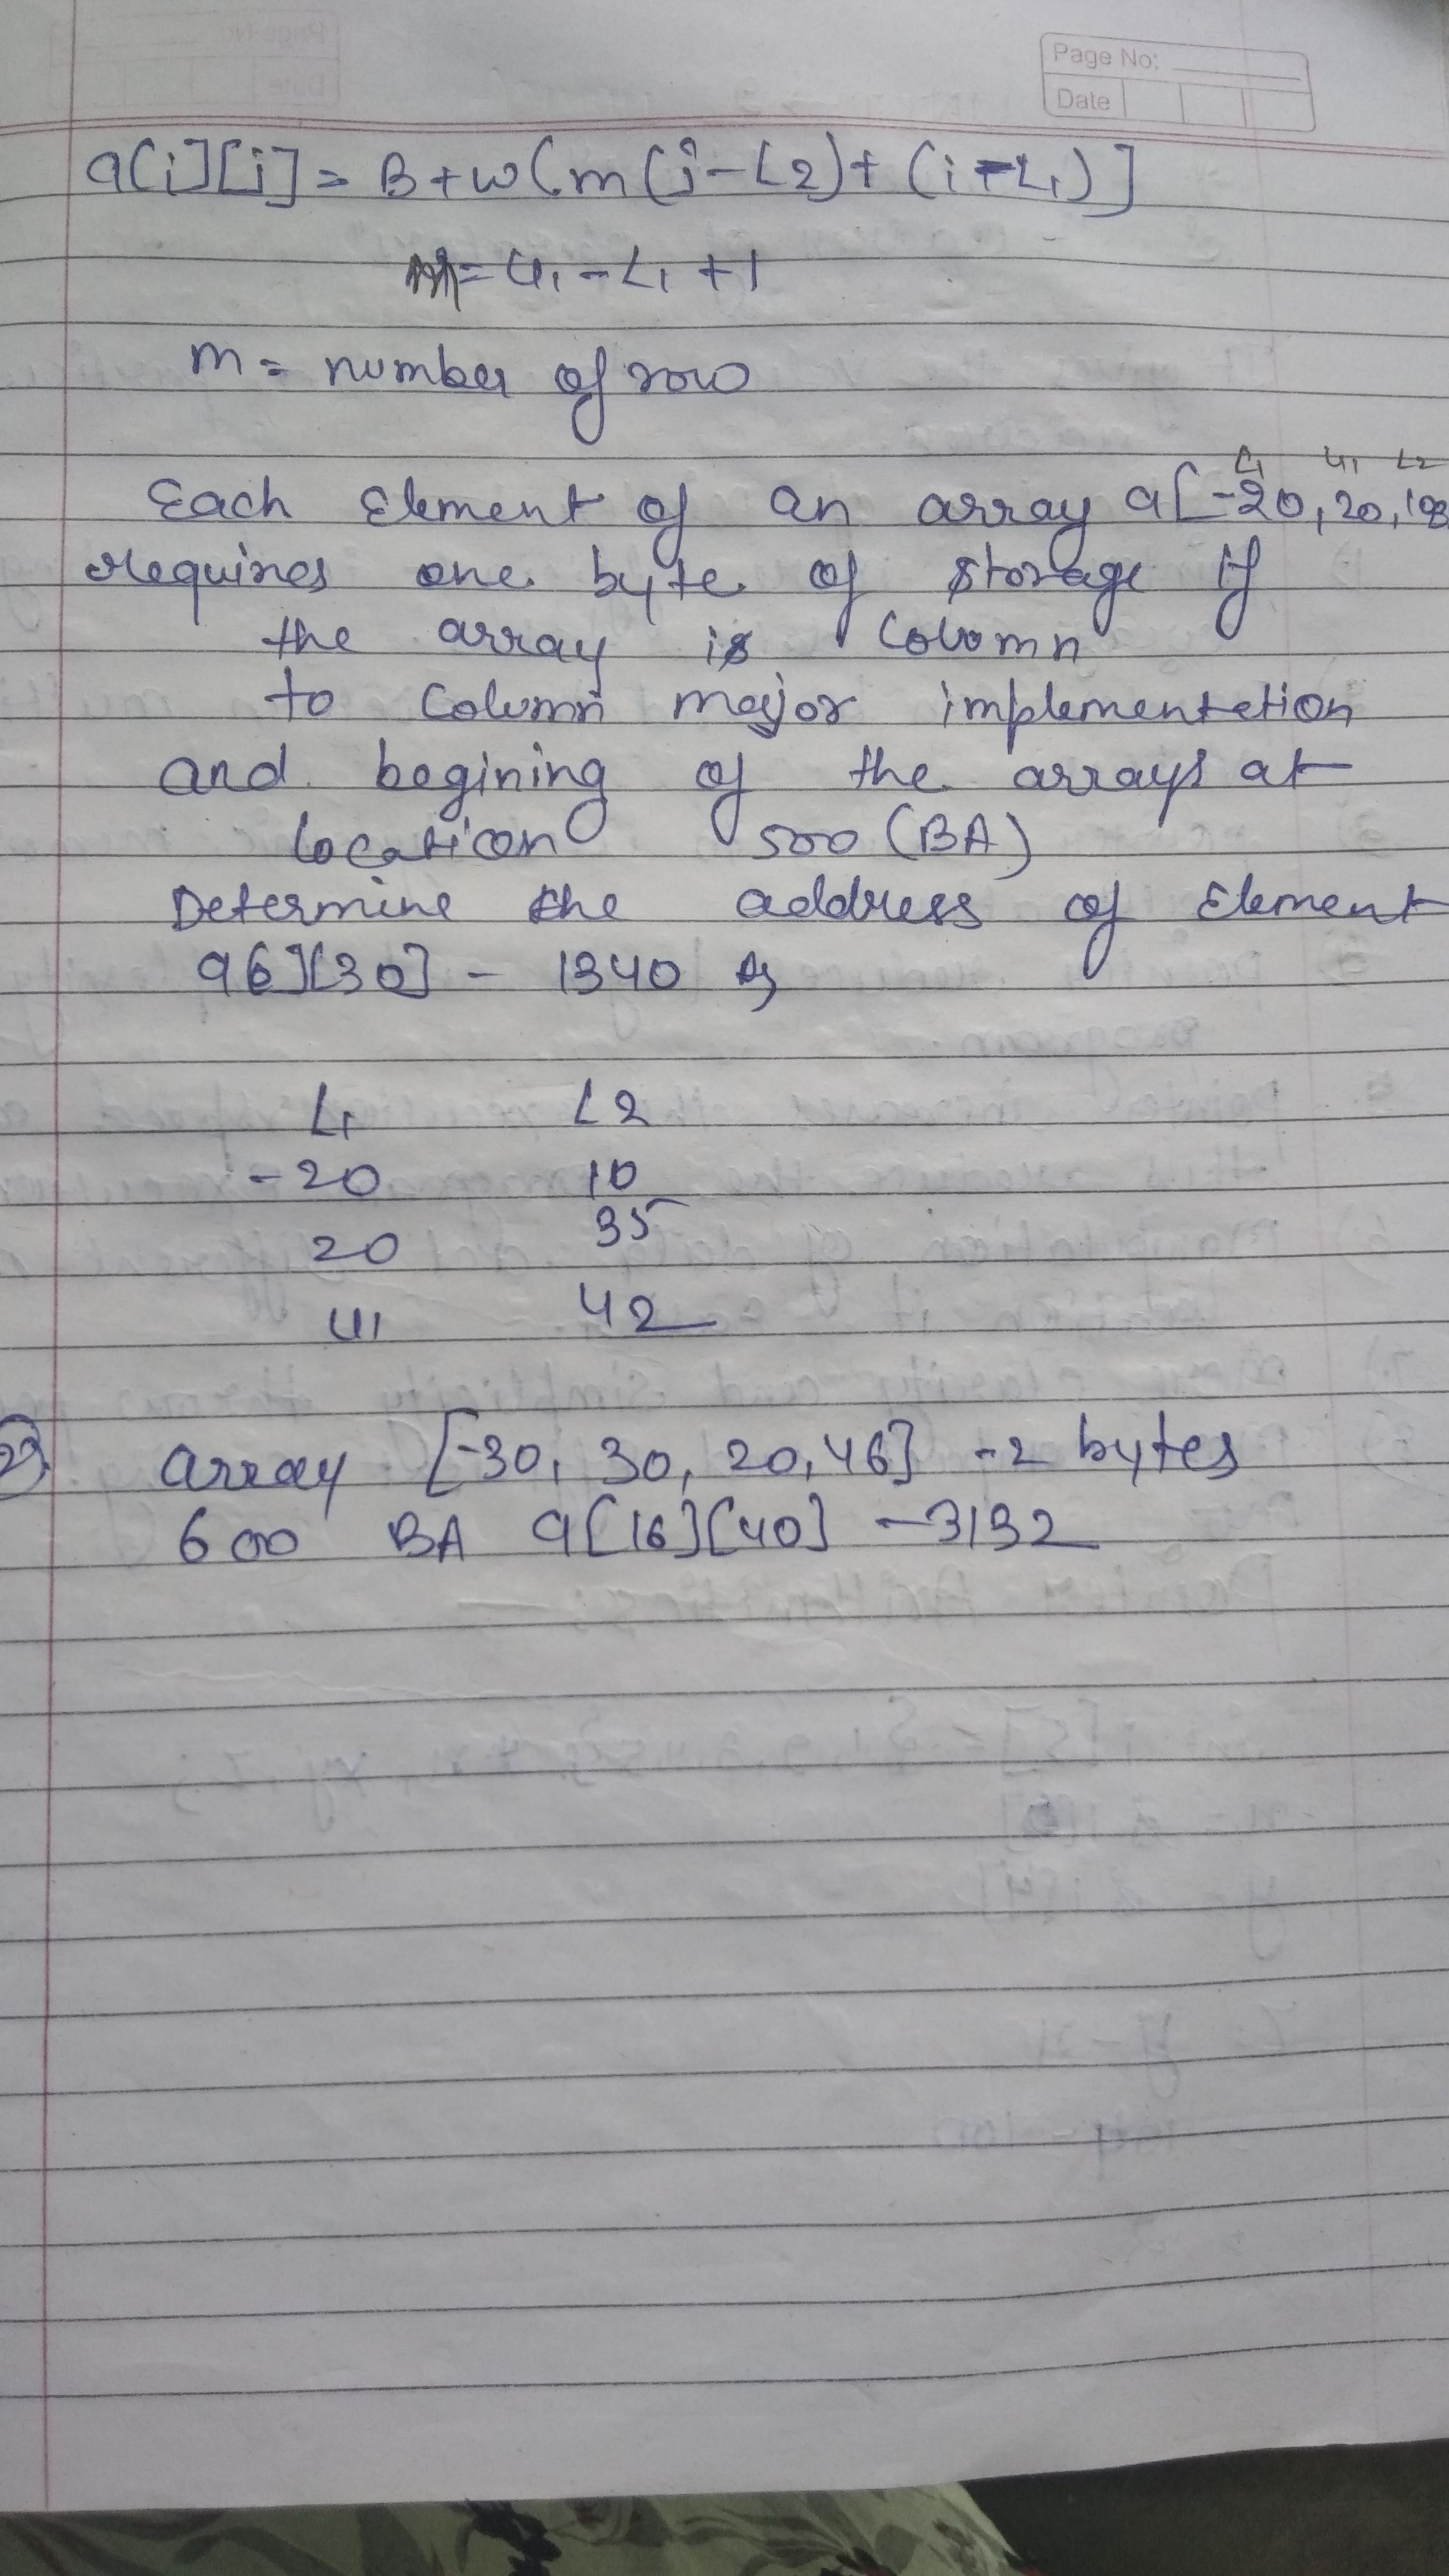 Page No:
Date
a[i][j] = B + w(m(j-L2) + (i-L1)]
m = U1 - L1 + 1
m = number of row
L1 U1 L2
Each Element of an array a[-20, 20, 10
requires one byte of storage if
the array is Colomn
to Column major implementetion
and begining of the arrays at
location 500 (BA)
Determine the address of Element
a6][30] - 1340 A
L1 L2
-20 10
20 35
U1 U2
2) array [-30, 30, 20, 46] -2 bytes
600 BA a[16][40] - 3132